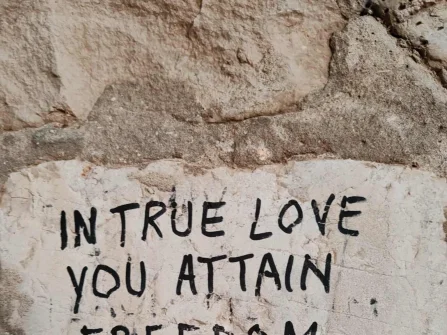 IN TRUE LOVE
YOU ATTAIN
FREEDOM